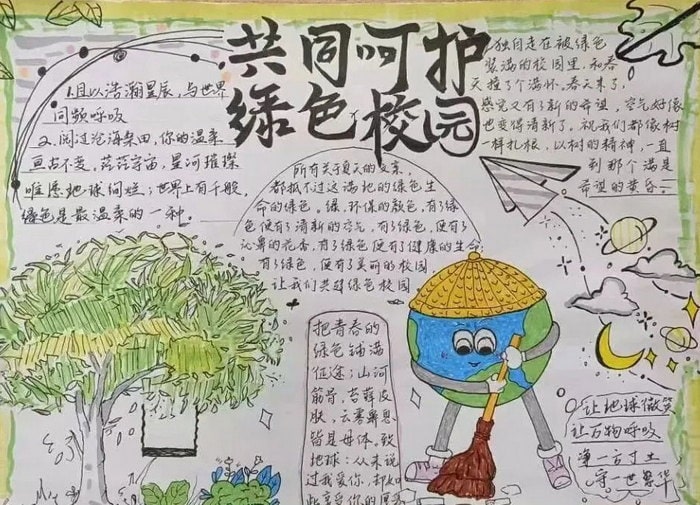 共同呵护
绿色校园
1.且以浩瀚星辰，与世界
同频呼吸
2.阅过沧海桑田，你的温柔
亘古不变。茫茫宇宙，星河璀璨
唯愿地球绚烂；世界上有千般
绿色是最温柔的一种。
独自走在被绿色
装满的校园里，和春
天撞了个满怀。春天来了，
感觉又有了新的希望，空气好像
也变得清新了。祝我们都像树
一样扎根，以树的精神，一直
到那个满是
希望的黄昏。
所有关于夏天的文案，
都抵不过这满地的绿色生
命的绿色。绿，环保的颜色，有了绿
色便有了清新的空气，有了绿色，便有了
沁鼻的花香，有了绿色便有了健康的生命
有了绿色，便有了美丽的校园
让我们共建绿色校园
把青春的
绿色铺满
征途；山河
筋骨，苔藓皮
肤，云雾鼻息
皆是母体，致
地球：从来说
过我爱你，却如
此享受你的厚
让地球微笑
让万物呼吸
单一方寸土
守一世繁华